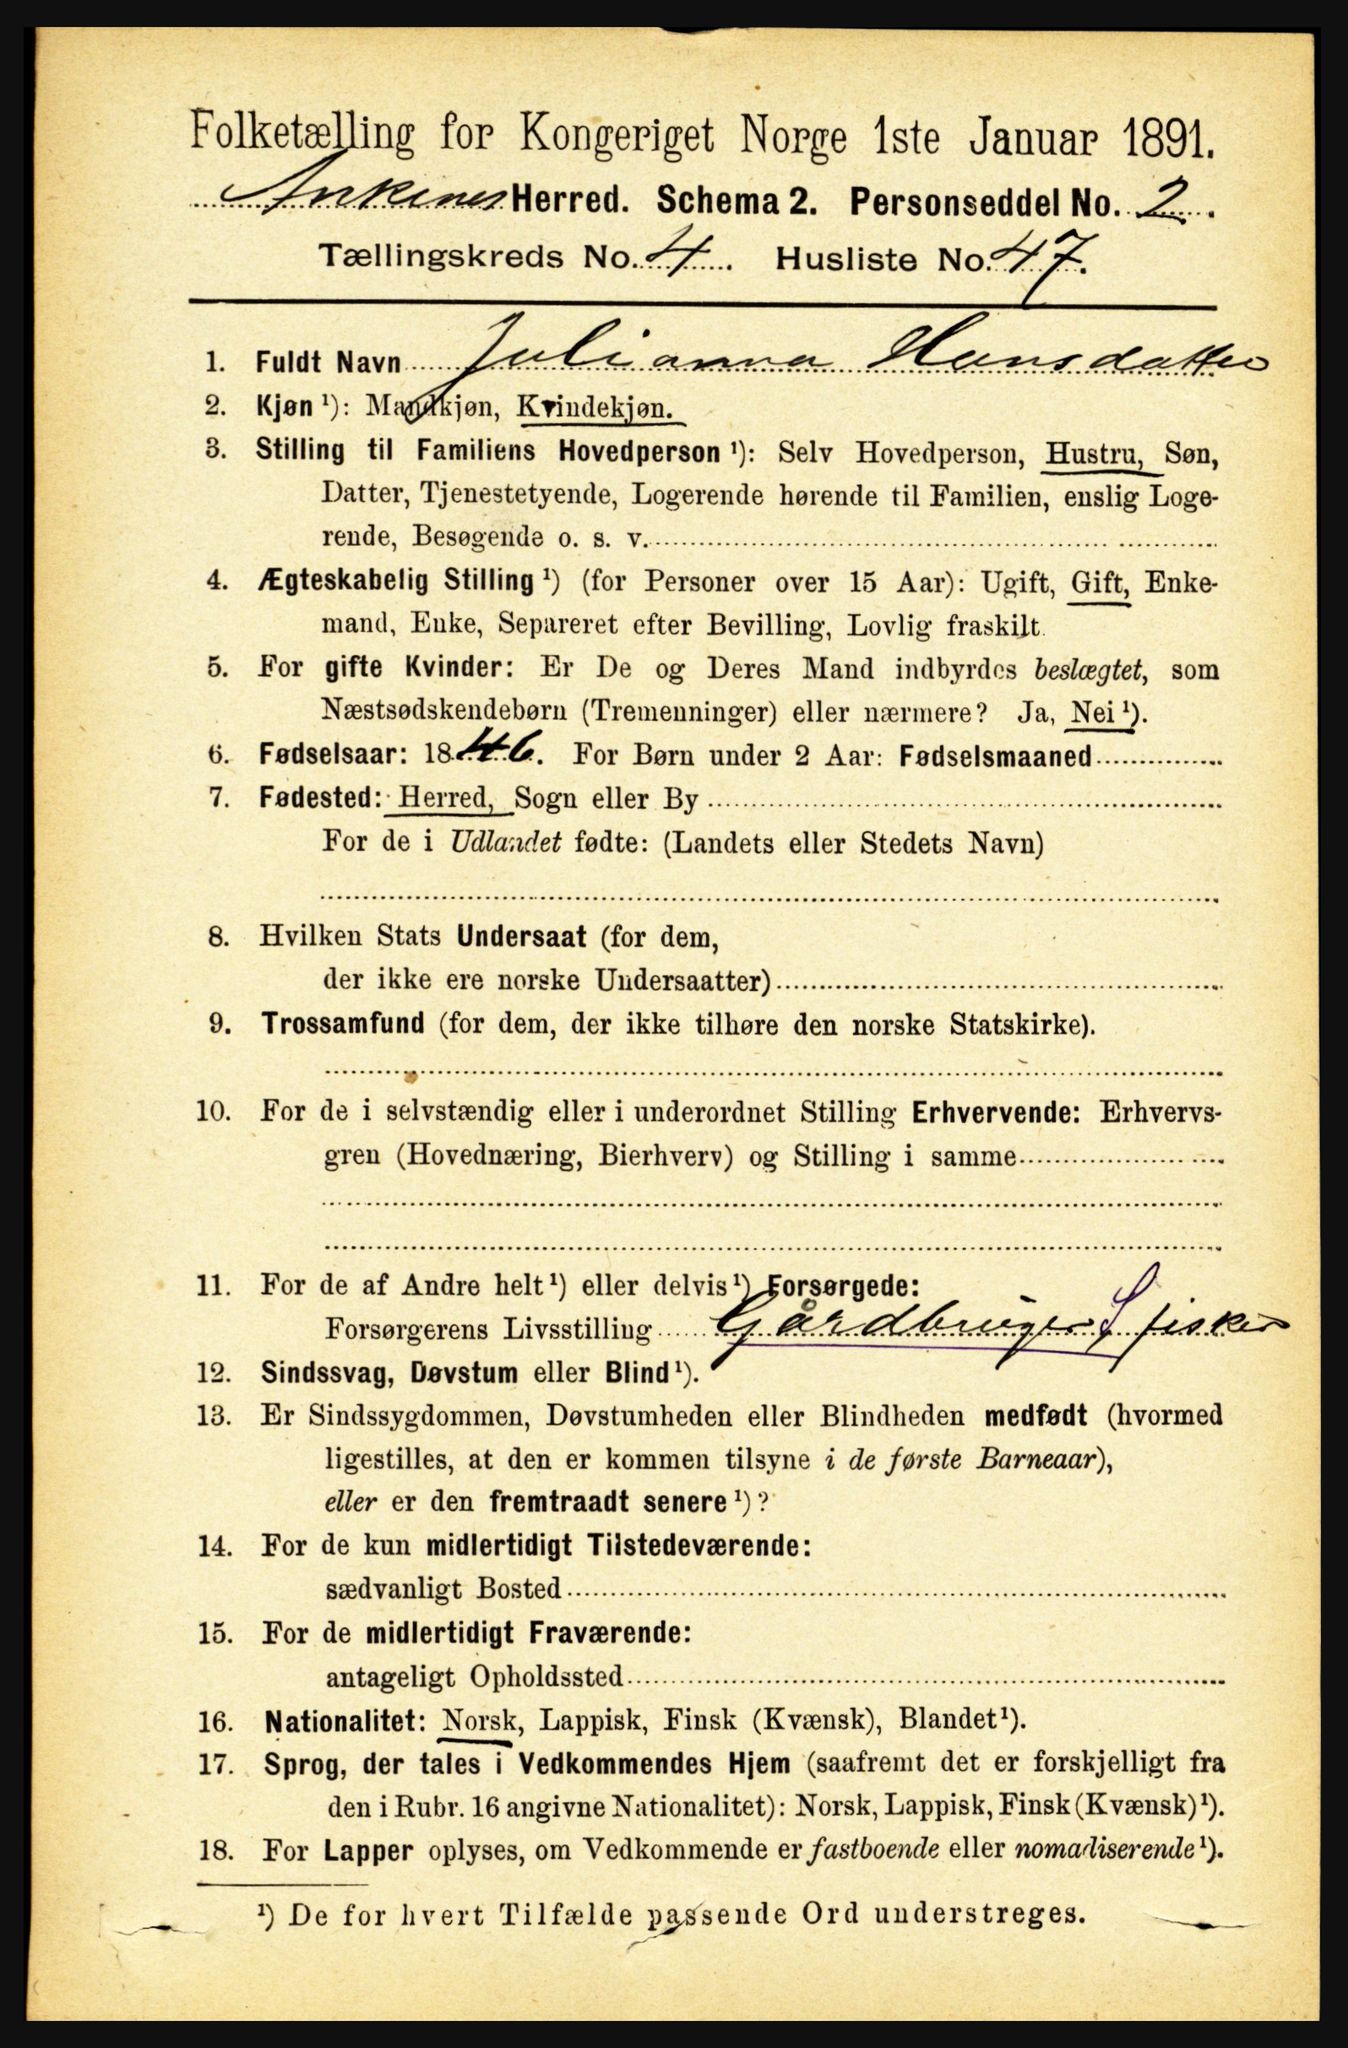 Folketælling for Kongeriget Norge 1ste Januar 1891.
Ankenes Herred. Schema 2. Personseddel No. 2.
Tællingskreds No. 4. Husliste No. 47.
1. Fuldt Navn Julianna Hansdatter
2. Kjøn ¹): Mandkjøn, Kvindekjøn.
3. Stilling til Familiens Hovedperson ¹): Selv Hovedperson, Hustru, Søn,
Datter, Tjenestetyende, Logerende hørende til Familien, enslig Loge-
rende, Besøgende o. s. v.
4. Ægteskabelig Stilling ¹) (for Personer over 15 Aar): Ugift, Gift, Enke-
mand, Enke, Separeret efter Bevilling, Lovlig fraskilt.
5. For gifte Kvinder: Er De og Deres Mand indbyrdes beslægtet, som
Næstsødskendebørn (Tremenninger) eller nærmere? Ja, Nei ¹).
6. Fødselsaar: 1846. For Børn under 2 Aar: Fødselsmaaned
7. Fødested: Herred, Sogn eller By
For de i Udlandet fødte: (Landets eller Stedets Navn)
8. Hvilken Stats Undersaat (for dem,
der ikke ere norske Undersaatter)
9. Trossamfund (for dem, der ikke tilhøre den norske Statskirke).
10. For de i selvstændig eller i underordnet Stilling Erhvervende: Erhvervs-
gren (Hovednæring, Bierhverv) og Stilling i samme
11. For de af Andre helt ¹) eller delvis ¹) Forsørgede:
Forsørgerens Livsstilling Gårdbruger S fisker
12. Sindssvag, Døvstum eller Blind ¹).
13. Er Sindssygdommen, Døvstumheden eller Blindheden medfødt (hvormed
ligestilles, at den er kommen tilsyne i de første Barneaar),
eller er den fremtraadt senere ¹)?
14. For de kun midlertidigt Tilstedeværende:
sædvanligt Bosted
15. For de midlertidigt Fraværende:
antageligt Opholdssted
16. Nationalitet: Norsk, Lappisk, Finsk (Kvænsk), Blandet ¹).
17. Sprog, der tales i Vedkommendes Hjem (saafremt det er forskjelligt fra
den i Rubr. 16 angivne Nationalitet): Norsk, Lappisk, Finsk (Kvænsk) ¹).
18. For Lapper oplyses, om Vedkommende er fastboende eller nomadiserende ¹).
¹) De for hvert Tilfælde passende Ord understreges.